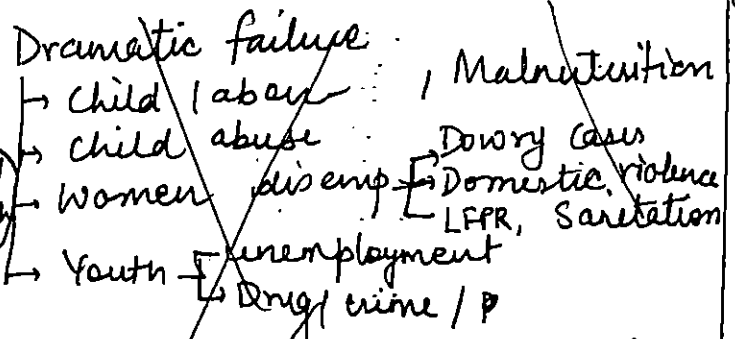 Dramatic failure
→ Child labour , Malnutrition
→ Child abuse
→ Dowry cases
→ Women disemp → Domestic violence
LFPR, Sanitation
→ Youth - unemployment
→ Drug / crime / P